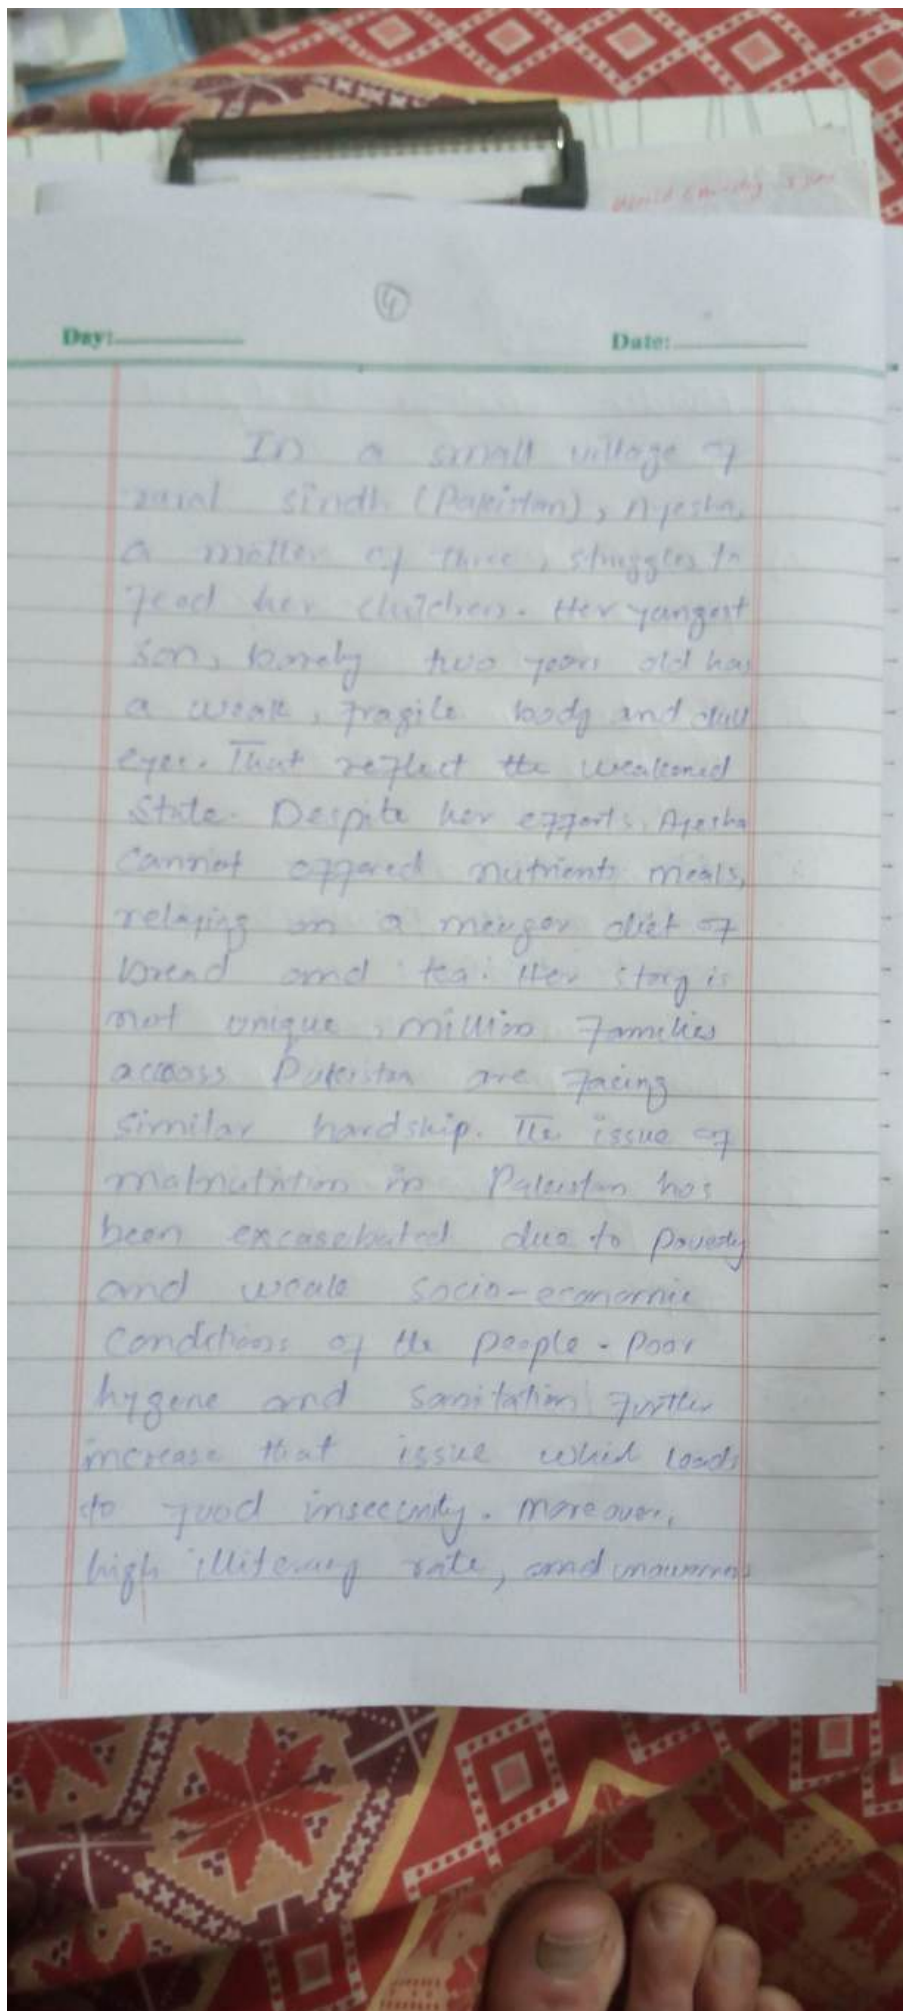 4
Day: Date:
In a small village of
rural Sindh (Pakistan), Ayesha,
a mother of three, struggles to
feed her children. Her yangest
son, barely two years old has
a weak, fragile body and dull
eyes. That reflect the weakened
State. Despite her efforts, Ayesha
cannot offered nutrients meals,
relaying on a meager diet of
bread and tea. Her story is
not unique, million families
across Pakistan are facing
similar hardship. The issue of
malnutrition in Pakistan has
been excasebated due to poverty
and weak socio-economic
conditions of the people. Poor
hygene and sanitation further
increase that issue which leads
to food insecurity. Moreover,
high illiteracy rate, and unawareness